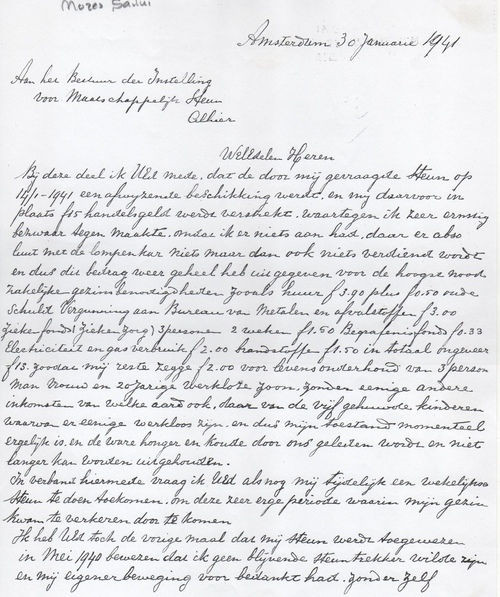 Mozes
Amsterdam 30 Januarie 1941
Aan het Bestuur der Instelling
voor Maatschappelijk Steun
Alhier
WelEdelen Heren
Bij deze deel ik UEd mede, dat de door mij gevraagde Steun op
14/1-1941 een afwyzende beschikking werdt, en my daarvoor in
plaats f15 handelsgeld werdt verstrekt, waartegen ik zeer ernstig
bezwaar tegen maakte, omdat ik er niets aan had, daar er abso
luut met de lompenkar niets maar dan ook niets verdienst wordt
en dus dit bedrag weer geheel heb uitgegeven voor de hoogse nood
zakelijke gezinsbenodigdheden zooals huur f 3.90 plus f0.50 oude
Schuld Vergunning aan Bureau van Metalen en afvalstoffen f 3.00
Ziekefonds (Zieken Zorg) 3 personen 2 weken f1.50 Begrafenisfonds f0.33
Electriciteit en gas verbruik f 2.00 brandstoffen f1.50 in totaal ongeveer
f13. zoodat mij reste zegge f2.00 voor levensonderhoud van 3 person
Man Vrouw en 20 jarige werkloze zoon, zonder eenige andere
inkomsten van welke aard ook, daar van de vijf gehuwde kinderen
waarvan er eenige werkloos zijn, en dus mijn toestand momenteel
ergelijk is, en de ware honger en Koude door ons geleden wordt en niet
langer kan worden uitgehouden.
In verband hiermede vraag ik UEd alsnog mij tijdelijk een wekelijkse
Steun te doen toekomen, om deze zeer erge periode waarin mijn gezin
kwam te verkeren door te komen
Ik heb UEd toch de vorige maal dat mij Steun werdt toegewezen
in Mei 1940 bewezen dat ik geen blijvende Steuntrekker wilde zijn
en mij eigener beweging voor bedankt had, zonder zelf